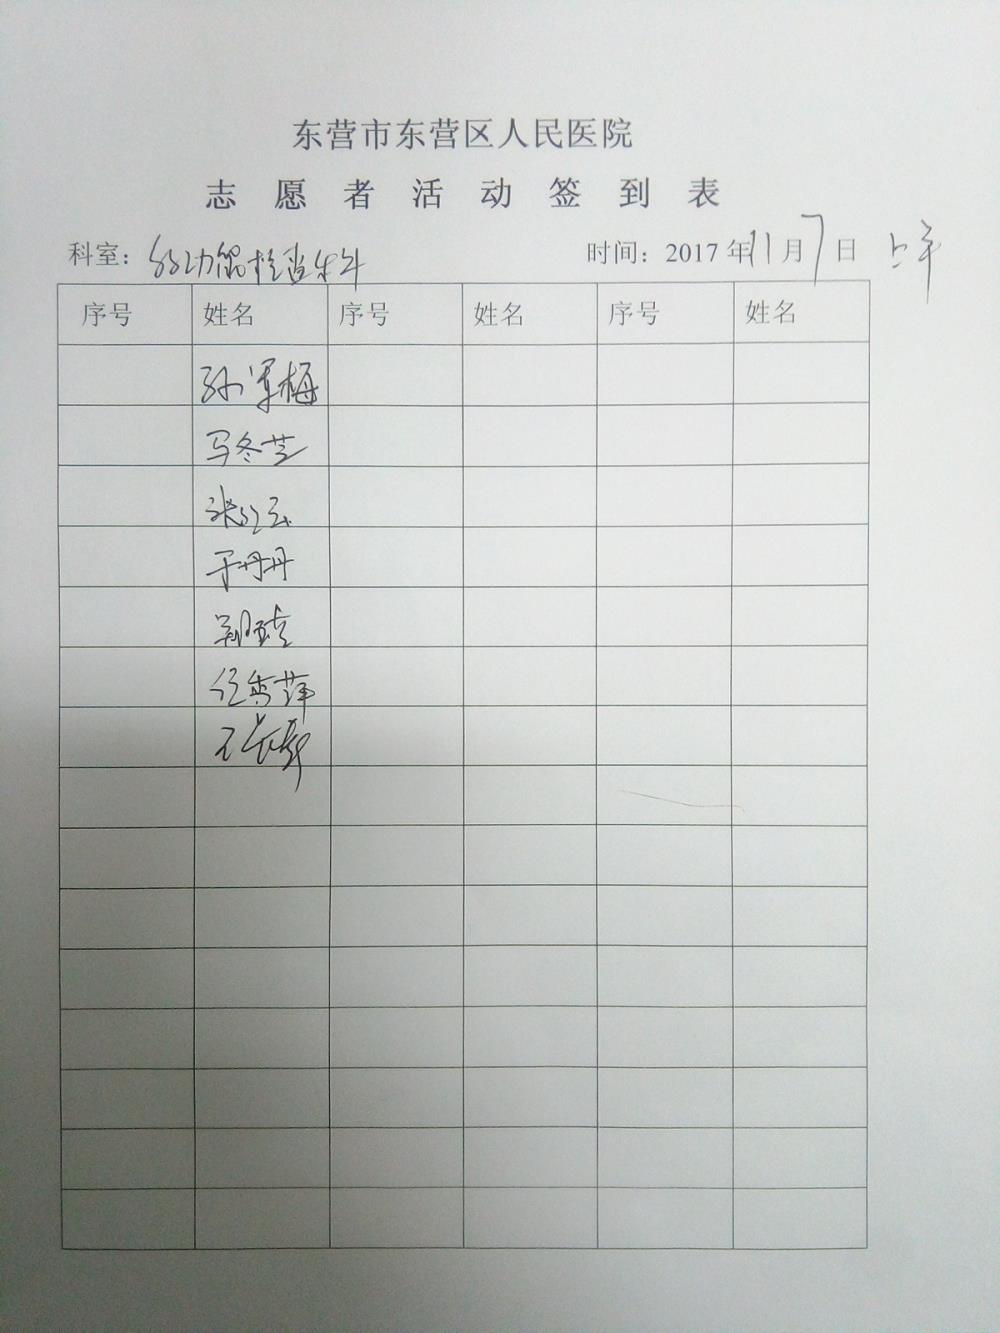 东营市东营区人民医院
志愿者活动签到表
科室： 功能检查
时间：2017年11月7日 上午
序号 姓名 序号 姓名 序号 姓名
孙军梅
马冬芝
张红玉
于丹丹
任秀萍
王